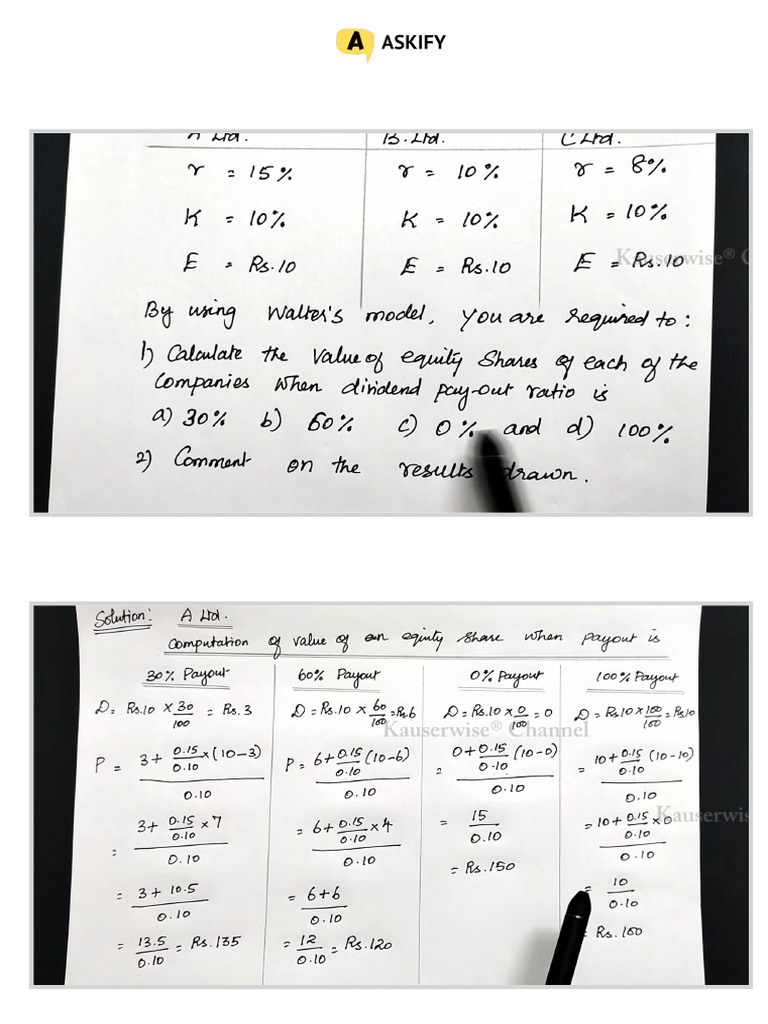 A ASKIFY
A Ltd. B. Ltd. C Ltd.
r = 15% r = 10% r = 8%
K = 10% K = 10% K = 10%
E = Rs.10 E = Rs.10 E = Rs.10
Kauserwise® C
By using Walter's model, you are required to:
1) Calculate the value of equity shares of each of the
Companies when dividend pay-out ratio is
a) 30% b) 60% c) 0% and d) 100%
2) Comment on the results drawn.
Solution: A Ltd.
Computation of value of an equity share when payout is
30% Payout 60% Payout 0% Payout 100% Payout
D = Rs.10 × 30/100 = Rs.3 D = Rs.10 × 60/100 = Rs.6 D = Rs.10 × 0/100 = 0 D = Rs10 × 100/100 = Rs10
Kauserwise® Channel
P = 3 + 0.15/0.10 × (10-3) P = 6 + 0.15/0.10 (10-6) = 0 + 0.15/0.10 (10-0) = 10 + 0.15/0.10 (10-10)
0.10 0.10 0.10 0.10
Kauserwis
= 3 + 0.15/0.10 × 7 = 6 + 0.15/0.10 × 4 = 15 = 10 + 0.15/0.10 × 0
0.10 0.10 0.10 0.10
= 3 + 10.5 = 6+6 = Rs.150 = 10
0.10 0.10 0.10
= 13.5/0.10 = Rs.135 = 12/0.10 = Rs.120 = Rs.100